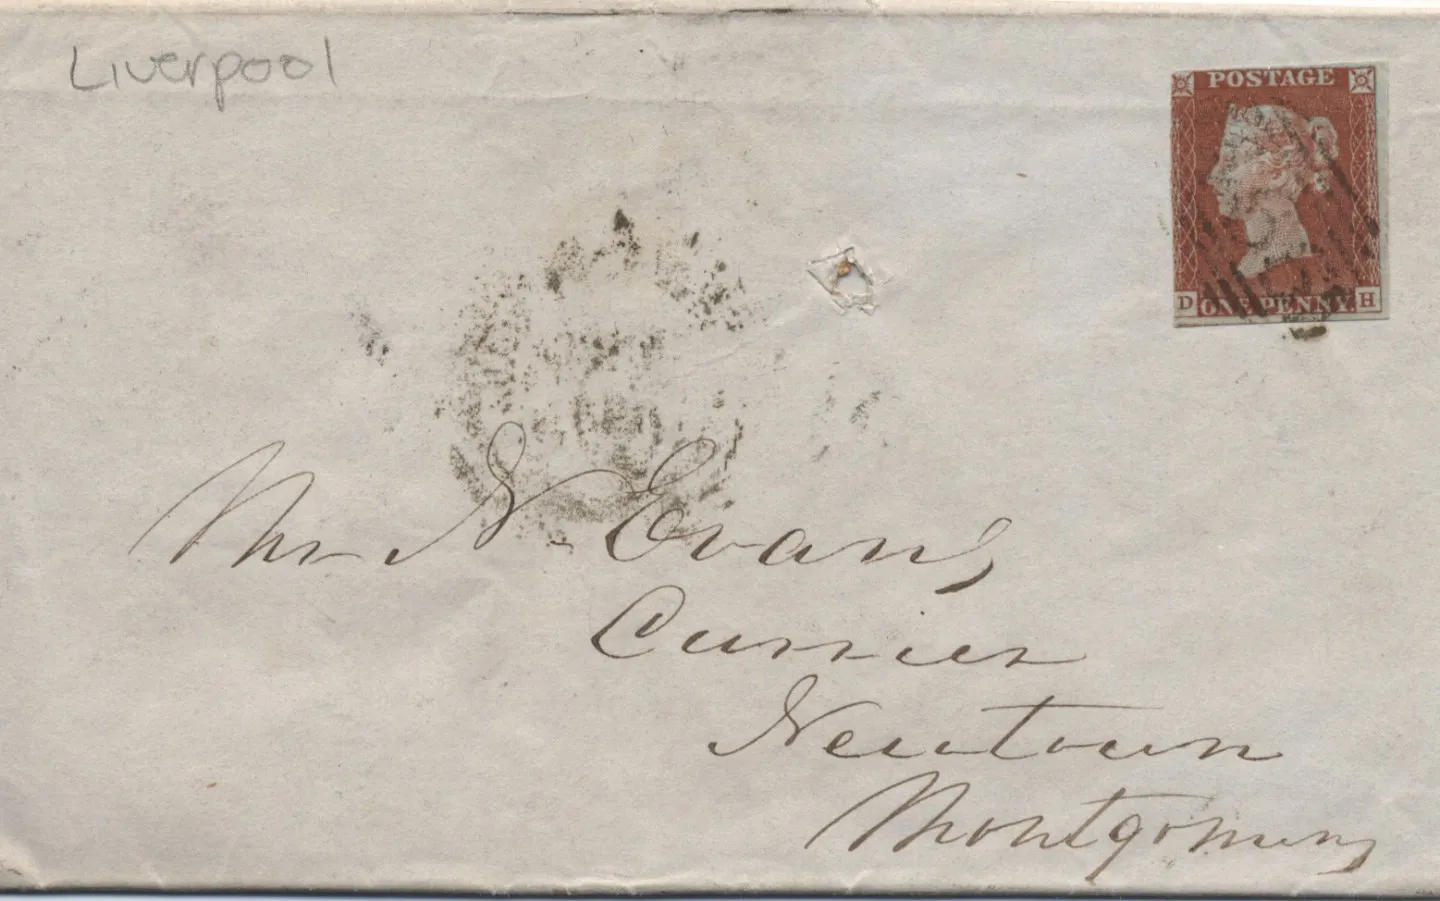 Liverpool
POSTAGE
D ONE PENNY. H
Mr N. Evans,
Currier
Newtown
Montgomery